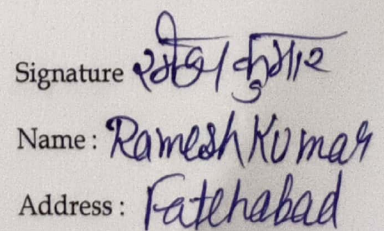 Signature रमेश कुमार
Name : Ramesh Kumar
Address : Fatehabad